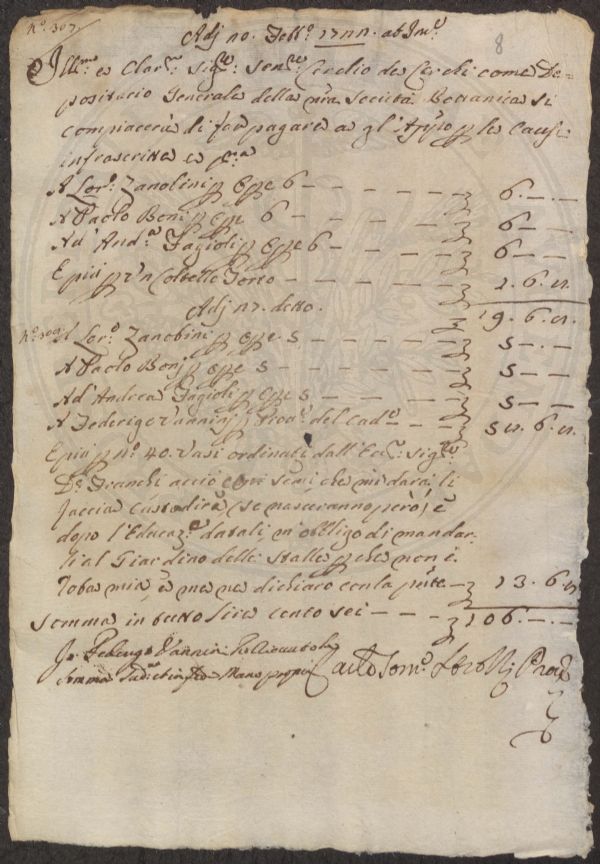 N.° 307
8
Adj 10. Febb.° 1744. ab Inc.e
Ill.mo e Clar.mo Sig.re Sen.re Cerchio de Cerchi come De=
positario Generale della nra Società Bottanica si
compiacerà di far pagare a gl'app.o p le cause
infrascritte e p.a
A Lor.o Zanobini p Ope 6 — — — — — 6. —. —
A Paolo Boni p Ope 6 — — — — 6 — —
Ad' And.a Fagioli p Ope 6 — — — — 6 — —
E più p Un Coltello Torto — — — — 1. 6. 4.
Adj 17. detto. 19. 6. 4.
N.° 309 A Lor.o Zanobini p Ope 5 — — — 5 — —
A Paolo Boni p Ope 5 — — — — 5 — —
Ad' Andrea Fagioli p Ope 5 — — — 5 — —
A Federigo Vannini p Prov.e del Cad.o — — 54. 6. 4.
E più p N.° 40. Vasi ordinati dall'Ecc.mo Sig.re
D.r Franchi acciò con semi che mi darà li
faccia custodire (se nasceranno però) e
dopo l'Educaz.e datali, m'obbligo di mandar
li al Giardino delle Stalle p che non è
roba mia, e me ne dichiaro con la pnte — 13. 6. 4
Somma in tutto lire cento sei — — — 106. —. —
Io Federigo Vannini Ho Riceuto la
Somma Sud.a Mano propria Carlo Tom.o